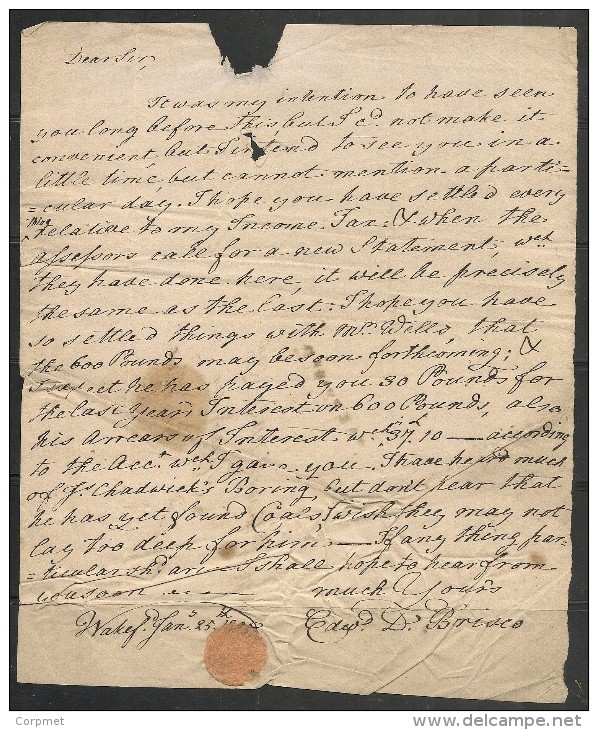 Dear Sir,
It was my intention to have seen
you long before this but I cd. not make it
convenient, but I intend to see you in a
little time, but cannot mention a parti=
=cular day. I hope you have settled every
thing
relative to my Income Tax: & when the
assessors call for a new Statement, wch
they have done here, it will be precisely
the same as the last: I hope you have
so settled things with Mr. Wells, that
the 600 Pounds may be soon forthcoming; &
I expect he has payed you 30 Pounds for
the last Years Interest on 600 Pounds, also
his Arrears of Interest wch 37. 10 — according
to the Acct. wch I gave you. I have heard much
of Js. Chadwick's Boring, but don't hear that
he has yet found Coals, I wish they may not
lay too deep for him. — If any thing par-
=ticular shd. arise I shall hope to hear from
you soon — much Yours
Wakefd. Jany. 25th. Edwd. Ds. Brisco
Corpmet
www.delcampe.net